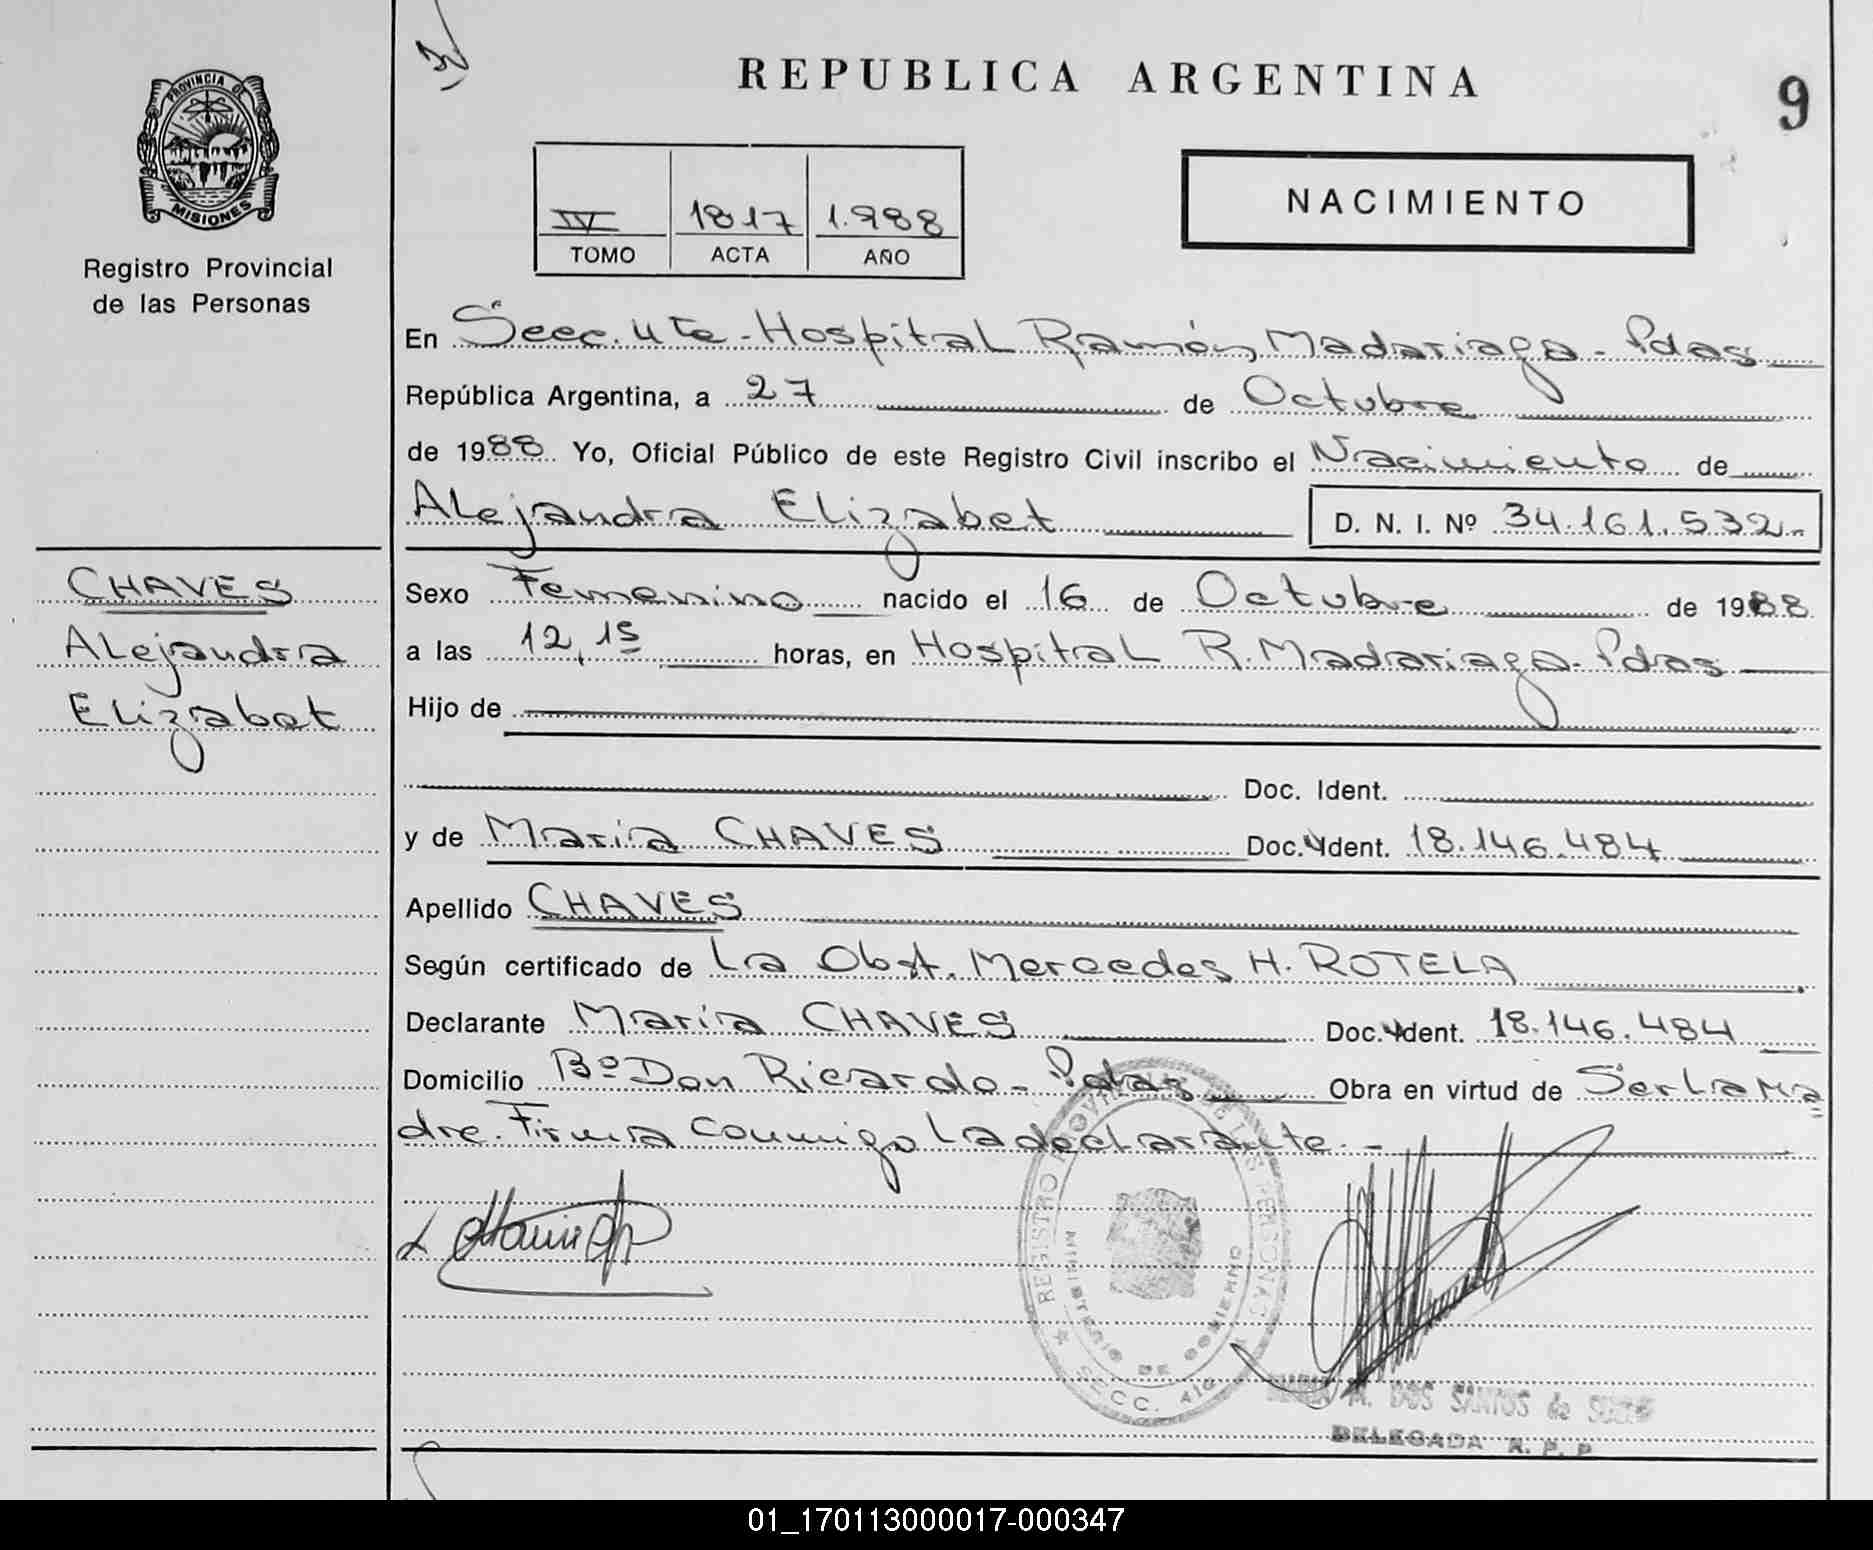 REPUBLICA ARGENTINA
9
PROVINCIA DE
MISIONES
Registro Provincial
de las Personas
IV 1817 1.988
TOMO ACTA AÑO
NACIMIENTO
En Secc. 4ta - Hospital Ramón Madariaga - Pdas
República Argentina, a 27 de Octubre
de 1988 Yo, Oficial Público de este Registro Civil inscribo el Nacimiento de
Alejandra Elizabet D. N. I. Nº 34.161.532
CHAVES
Alejandra
Elizabet
Sexo Femenino nacido el 16 de Octubre de 1988
a las 12,15 horas, en Hospital R. Madariaga - Pdas
Hijo de
Doc. Ident.
y de María CHAVES Doc. Ident. 18.146.484
Apellido CHAVES
Según certificado de La Obst. Mercedes H. ROTELA
Declarante María CHAVES Doc. Ident. 18.146.484
Domicilio Bº Don Ricardo - Pdas Obra en virtud de Ser La Ma
dre. Firma conmigo La declarante. -
REGISTRO PROVINCIAL DE LAS PERSONAS
MINISTERIO DE GOBIERNO
SECC. 4ta
M. DOS SANTOS de
DELEGADA R. P. P
01_170113000017-000347